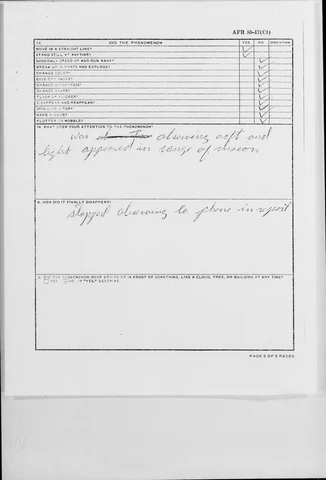 AFR 80-17(C1)
DID THE PHENOMENON YES NO UNKNOWN
MOVE IN A STRAIGHT LINE?
STAND STILL AT ANYTIME?
SUDDENLY SPEED UP AND RUN AWAY?
BREAK UP IN PARTS AND EXPLODE?
CHANGE COLOR?
GIVE OFF SMOKE?
CHANGE BRIGHTNESS?
CHANGE SHAPE?
FLASH OR FLICKER?
DISAPPEAR AND REAPPEAR?
SPIN LIKE A TOP?
MAKE A NOISE?
FLUTTER OR WOBBLE?
WHAT DREW YOUR ATTENTION TO THE PHENOMENON?
was observing acft and
light appeared in range of vision
HOW DID IT FINALLY DISAPPEAR?
Stopped observing to phone in report
DID THE PHENOMENON MOVE BEHIND OR IN FRONT OF SOMETHING, LIKE A CLOUD, TREE, OR BUILDING AT ANY TIME?
YES NO. IF "YES," DESCRIBE.
PAGE 5 OF 5 PAGES